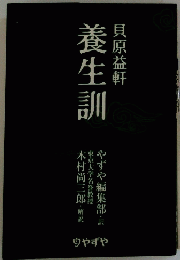 貝原益軒
養生訓
やずや編集部・訳
東京大学名誉教授
木村尚三郎・解説
やずや